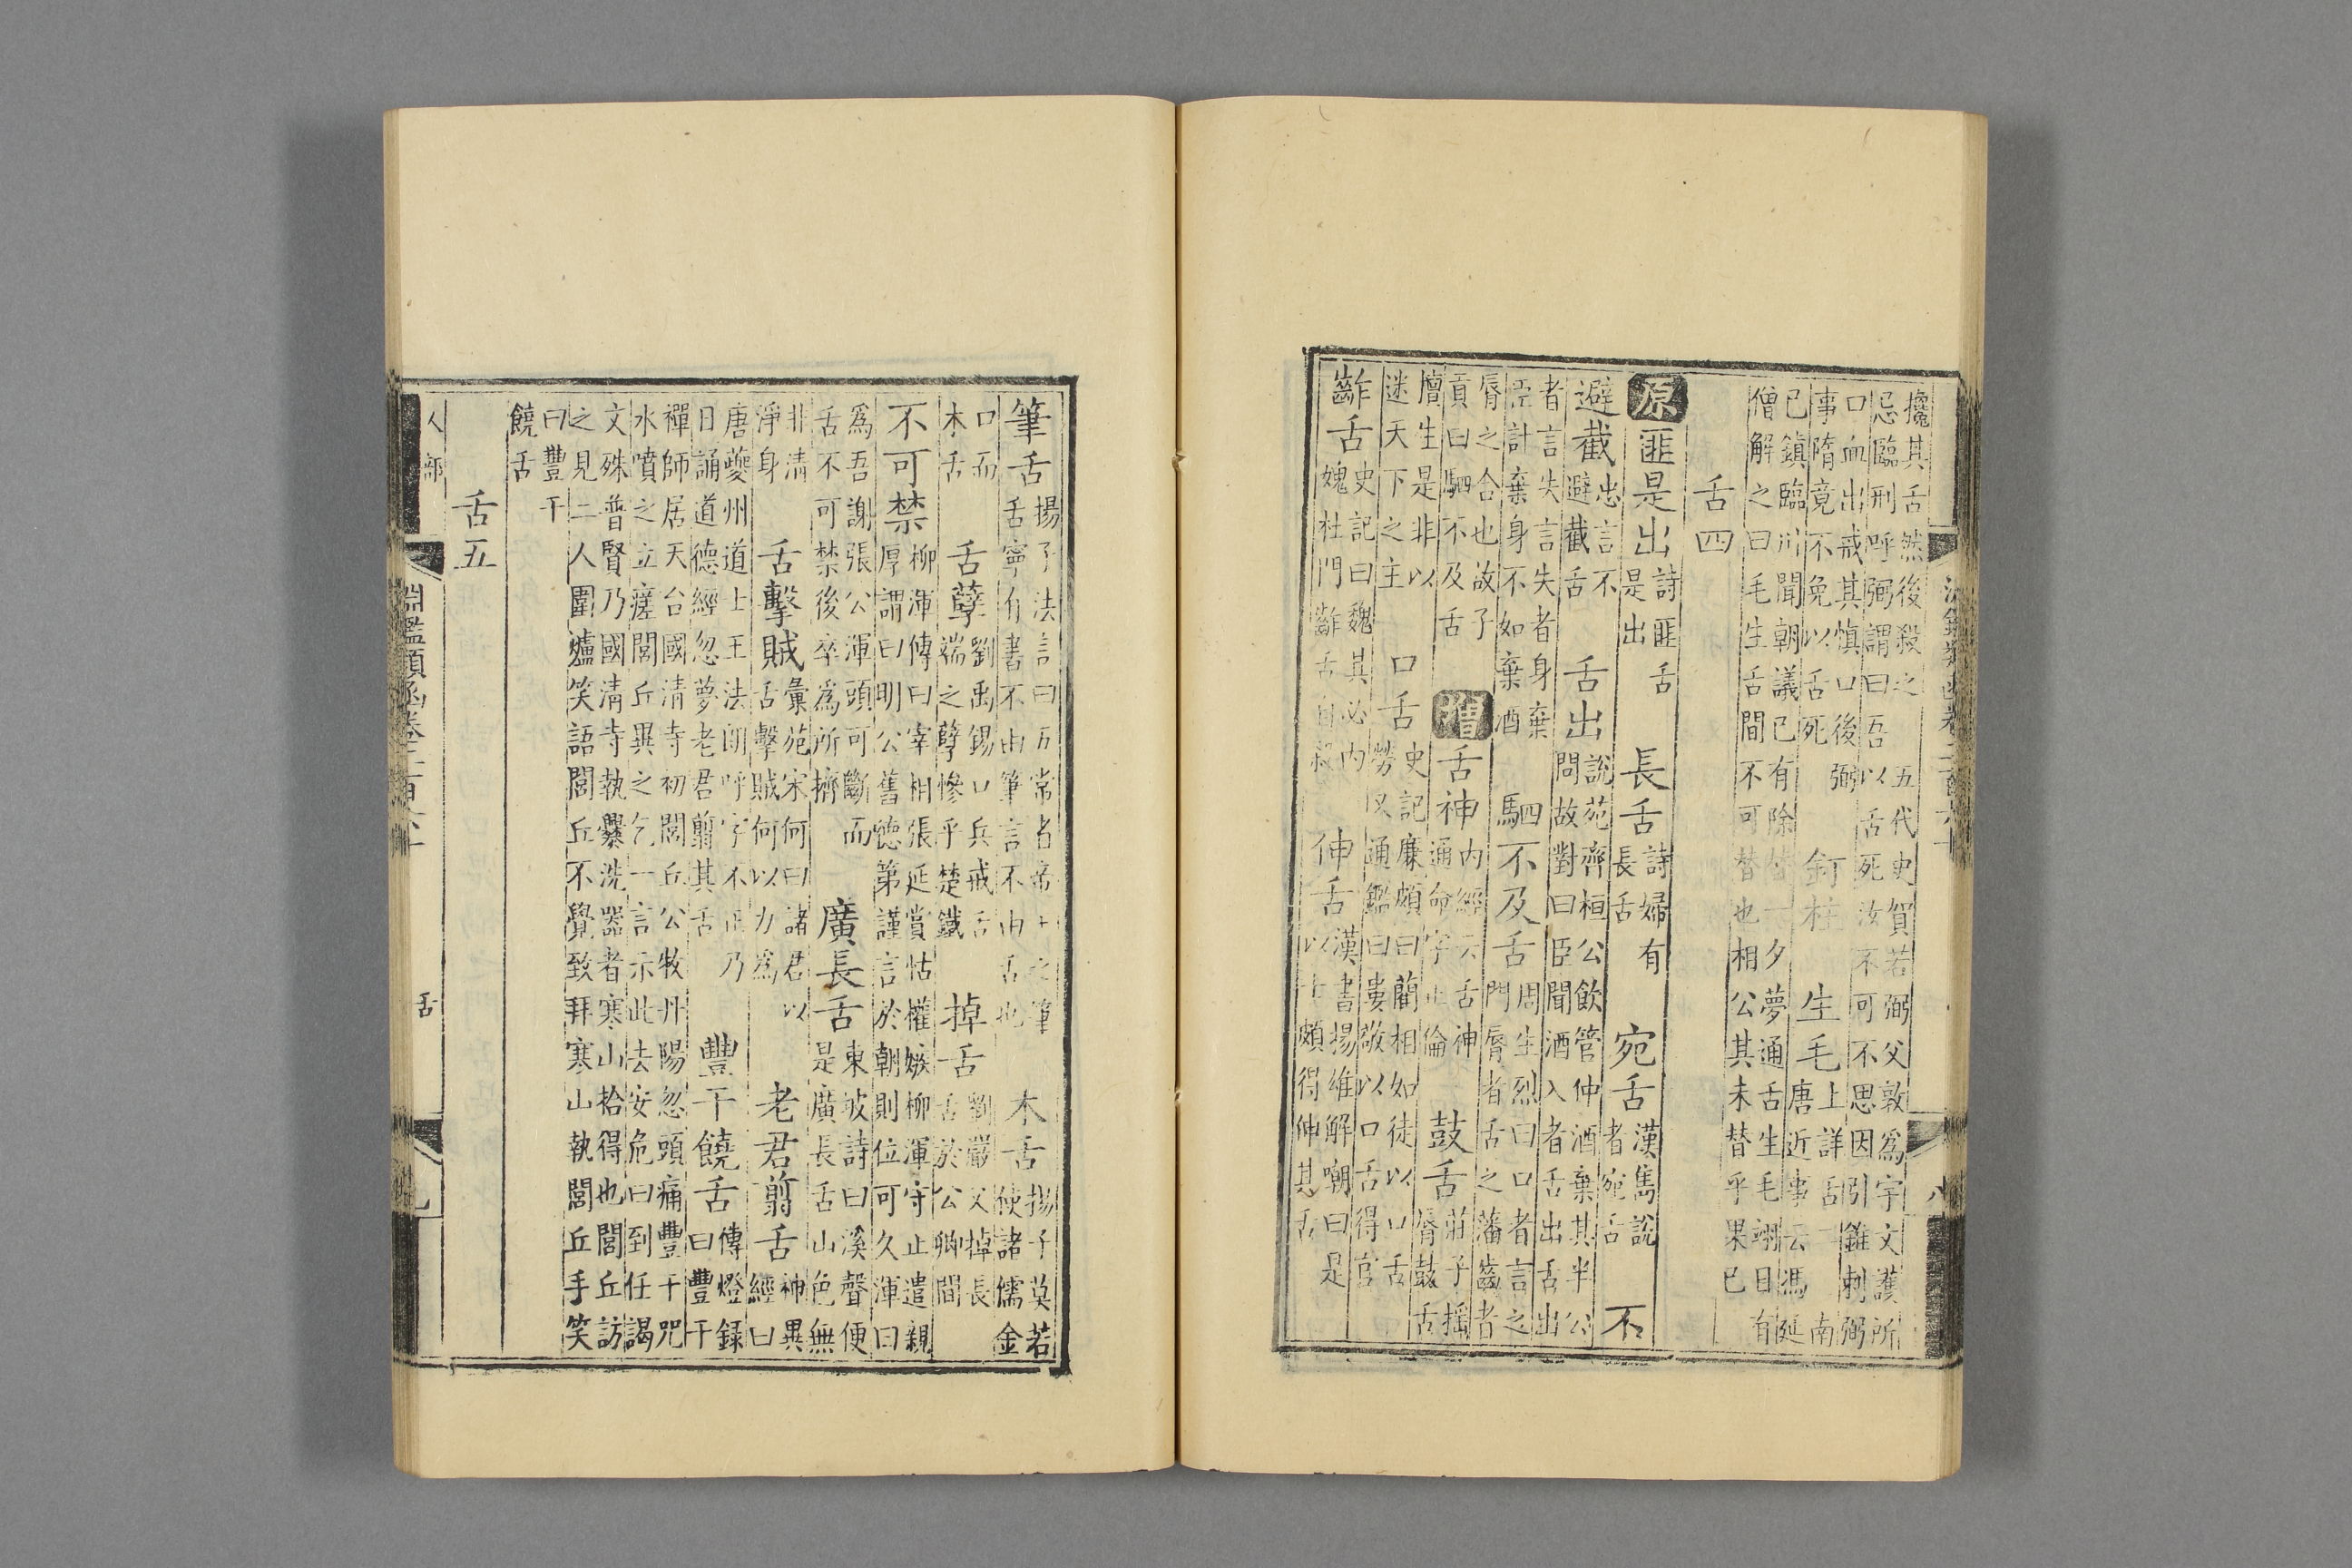 淵鑑類函卷二百六十 八
攙其舌然後殺之 五代史賀若弼父敦爲宇文護所
忌臨刑呼弼謂曰吾以舌死汝不可不思因引錐刺弼
口血出戒其愼口後弼
事隋竟不免以舌死 釘柱 生毛 上詳舌一 南
唐近事云馮延
巳鎮臨川聞朝議已有除替一夕夢通舌生毛翊日有
僧解之曰毛生舌間不可替也相公其未替乎果已
舌四
原 匪是出 詩匪舌
是出 長舌 詩婦有
長舌 宛舌 漢雋說
者宛舌 不
避截 忠言不
避截舌 舌出 說苑齊桓公飲管仲酒棄其半公
問故對曰臣聞酒入者舌出舌出
者言失言失者身棄
臣計棄身不如棄酒 駟不及舌 周生烈曰口者言之
門脣者舌之藩齒者
脣之合也故子
貢曰駟不及舌 增 舌神 内經云舌神
通命字正倫 鼓舌 莊子搖
脣鼓舌
擅生是非以
迷天下之主 口舌 史記廉頗曰藺相如徒以口舌
勞又通鑑曰婁敬以口舌得官
齰舌 史記曰魏其必内
媿杜門齰舌自殺 伸舌 漢書揚雄解嘲曰是
以士頗得伸其舌
筆舌 揚子法言曰五常者帝王之筆
舌寧有書不由筆言不由舌也 木舌 揚子莫若
使諸儒金
口而
木舌 舌孽 劉禹錫口兵戒舌
端之孽慘乎楚鐵 掉舌 劉嚴又掉長
舌於公卿間
不可禁 柳渾傳曰宰相張延賞怙權嫉柳渾守正遣親
厚謂曰明公舊德第謹言於朝則位可久渾曰
爲吾謝張公渾頭可斷而
舌不可禁後卒爲所擠 廣長舌 東坡詩曰溪聲便
是廣長舌山色無
非清
淨身 舌擊賊 彙苑宋何曰諸君以
舌擊賊何以力爲 老君翦舌 神異
經曰
唐夔州道士王法朗呼字不正乃
日誦道德經忽夢老君翦其舌 豐干饒舌 傳燈録
曰豐干
禪師居天台國清寺初閭丘公牧丹陽忽頭痛豐干咒
水噴之立瘥閭丘異之乞一言示此去安危曰到任謁
文殊普賢乃國清寺執爨洗器者寒山拾得也閭丘訪
之見二人圍爐笑語閭丘不覺致拜寒山執閭丘手笑
曰豐干
饒舌
舌五
人部 舌
淵鑑類函卷二百六十 九